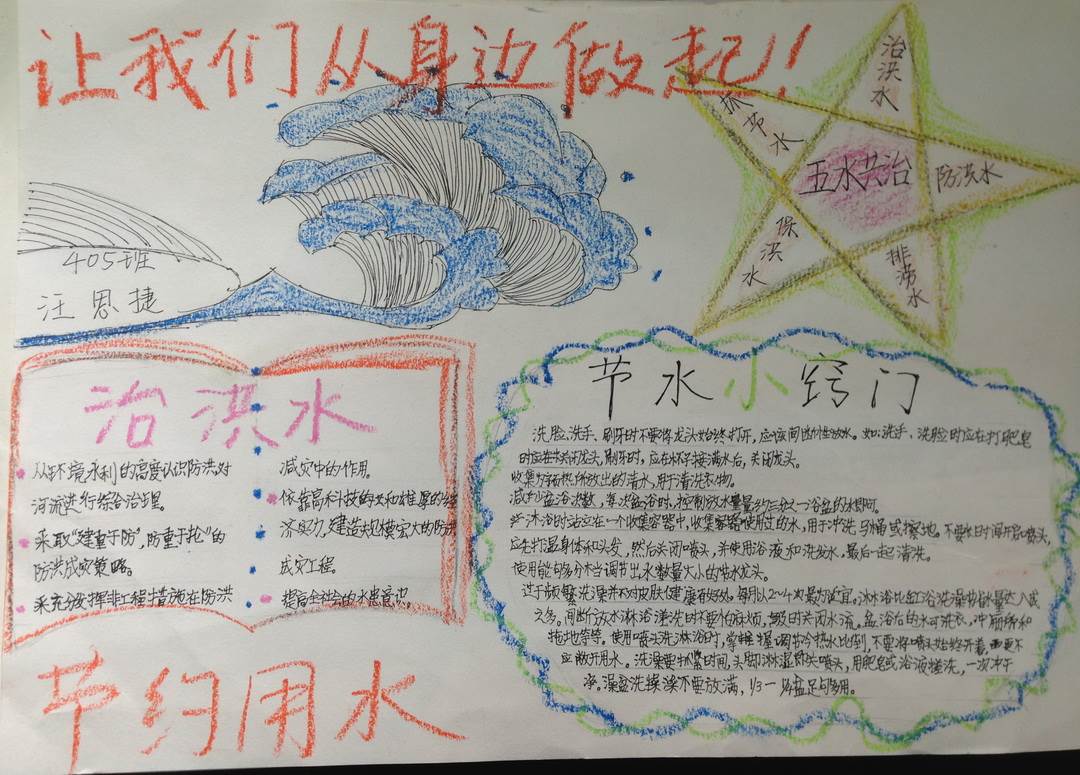 让我们从身边做起!!
治洪水
抓节水
五水共治
防洪水
保洪水
排涝水
405班
汪恩捷
治洪水
从环境水利的高度认识防洪对
河流进行综合治理。
采取“建重于防,防重于抢”的
防洪成灾策略。
采充分发挥非工程措施在防洪
减灾中的作用
依靠高科技的
济实力,建造规模宏大的防洪
成灾工程。
提高全社会的水患意识
节水小窍门
洗脸、洗手、刷牙时不要将龙头始终打开,应该间断性放水。如:洗手、洗脸时应在打肥皂
时应在关闭龙头,刷牙时,应在杯子接满水后,关闭龙头。
收集方所放出的清水,用于清洗衣物。
减少盆浴次数,每次盆浴时,控制放水量,约三分一浴盆的水即可。
沐浴时站立在一个收集容器中,收集容器使过的水,用于冲洗马桶或擦地。不要长时间开启喷头,
应先打湿身体和头发,然后关闭喷头,并使用浴液和洗发水,最后一起清洗。
使用能够分档调节出水数量大小的节水龙头。
过于频繁洗澡并不对皮肤健康有好处,每周以2~4次最为适宜。淋浴比缸浴洗澡节能量达八成
之多。间断放水淋浴 搓洗时不要怕麻烦,
盆浴后的水可洗衣、冲厕所和
拖地等等。使用喷头洗淋浴时,掌握调节冷热水比例,不要将喷头始终开着,更不
应敞开用水。洗澡要抓紧时间,头脚淋湿即关喷头,用肥皂或浴液搓洗,一次冲干
净。澡盆洗澡不要放满,1/3一盆足够用。
节约用水